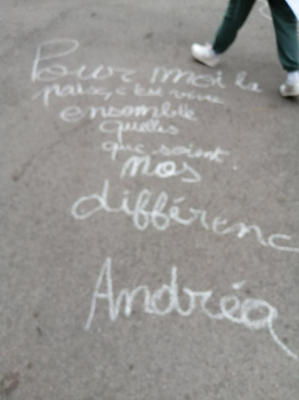 Pour moi la
paix, c'est vivre
ensemble
quelles
que soient
nos
différenc
Andréa